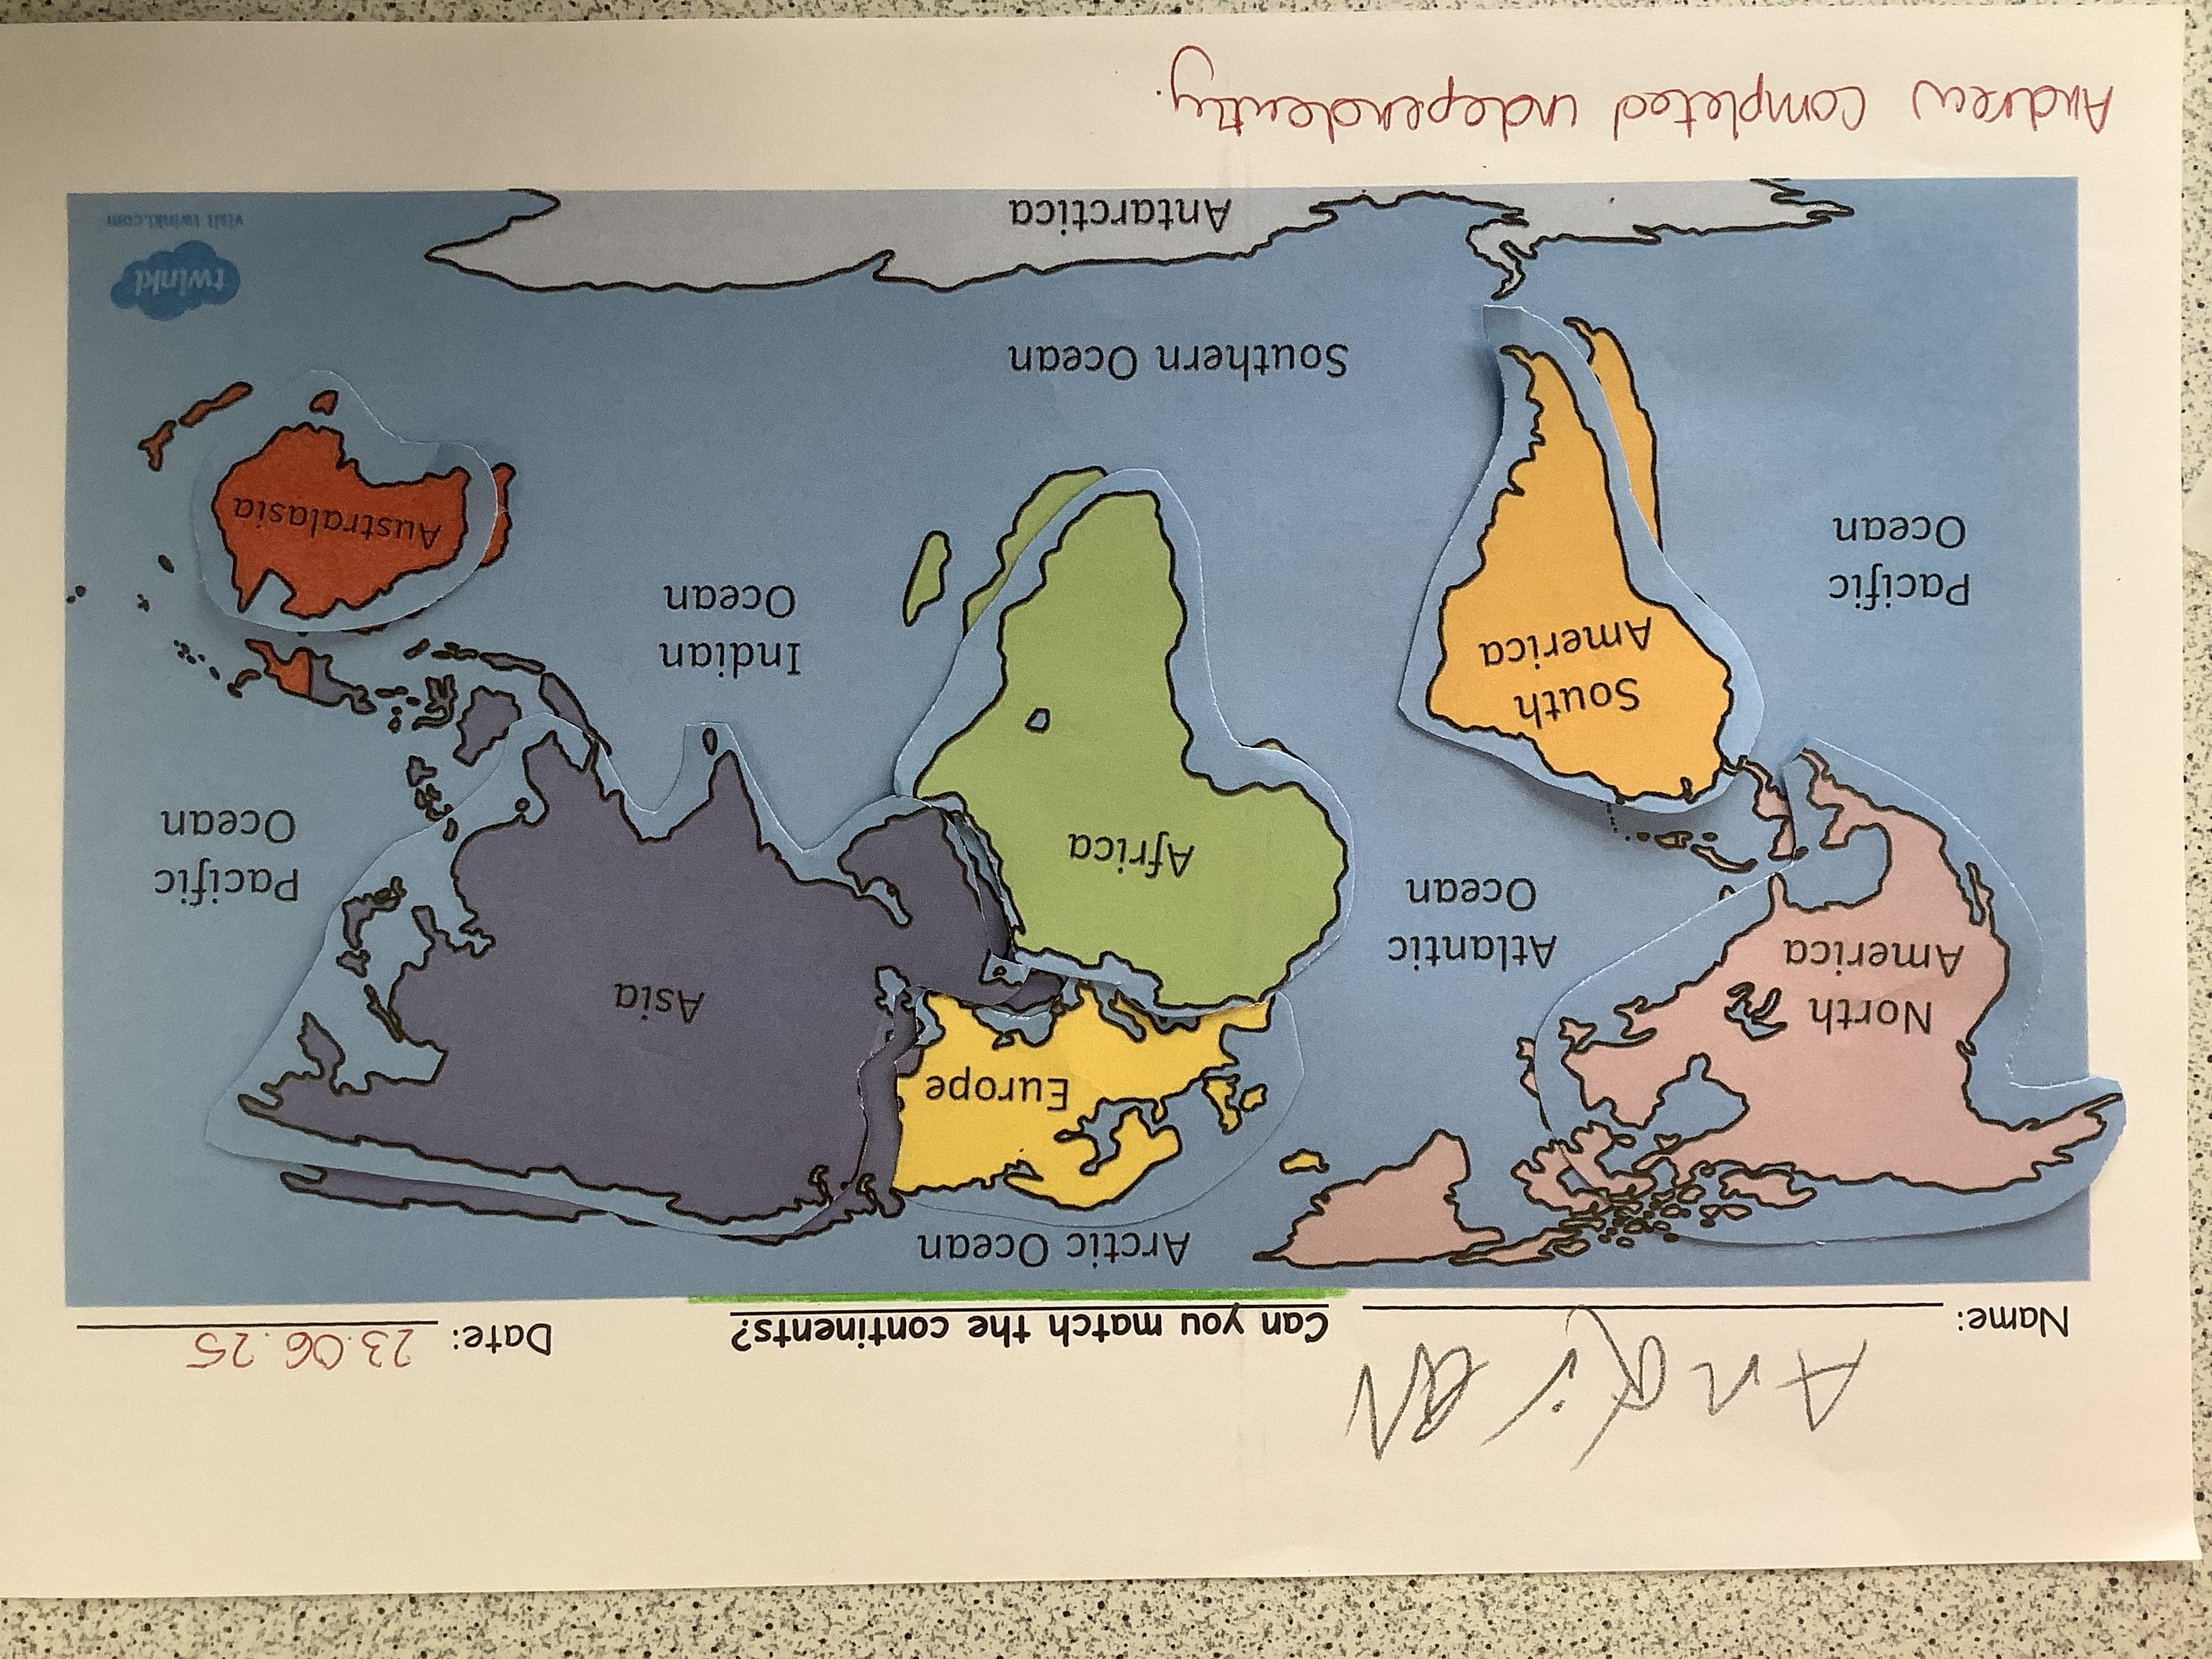 Name: Andrew
Can you match the continents?
Date: 23.06.25
Arctic Ocean
North
America
Europe
Asia
Atlantic
Ocean
Africa
Pacific
Ocean
South
America
Indian
Ocean
Pacific
Ocean
Australasia
Southern Ocean
Antarctica
twinkl
visit twinkl.com
Andrew completed independently.